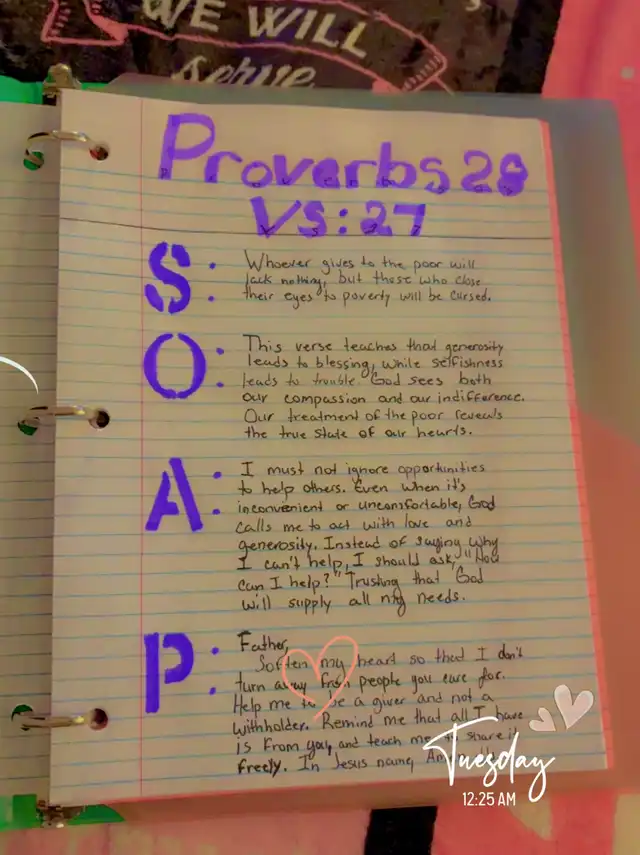 WE WILL
serve
Proverbs 28
Vs: 27
S: Whoever gives to the poor will
lack nothing, but those who close
their eyes to poverty will be cursed.
O: This verse teaches that generosity
leads to blessing, while selfishness
leads to trouble. God sees both
our compassion and our indifference.
Our treatment of the poor reveals
the true state of our hearts.
A: I must not ignore opportunities
to help others. Even when it's
inconvenient or uncomfortable, God
calls me to act with love and
generosity. Instead of saying why
I can't help, I should ask, "How
can I help?" Trusting that God
will supply all my needs.
P: Father,
Soften my heart so that I don't
turn away from people you care for.
Help me to be a giver and not a
withholder. Remind me that all I have
is from you, and teach me share it
freely. In Jesus name,
Tuesday
12:25 AM